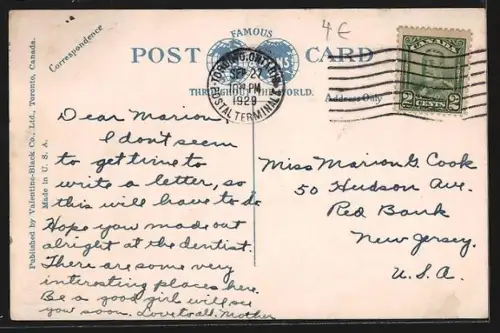 4€
FAMOUS
POST CARD
THROUGHOUT THE WORLD.
Correspondence
Address Only
TORONTO, ONTARIO
SEP 27
10 PM
1929
POSTAL TERMINAL
CANADA
2 CENTS 2
Published by Valentine-Black Co., Ltd., Toronto, Canada.
Made in U. S. A.
Dear Marion
I don't seem
to get time to
write a letter, so
this will have to do
Hope you made out
alright at the dentist.
There are some very
interesting places here.
Be a good girl will see
you soon. Love to all. Mother
Miss Marion G. Cook
50 Hudson Ave.
Red Bank
New Jersey.
U.S.A.